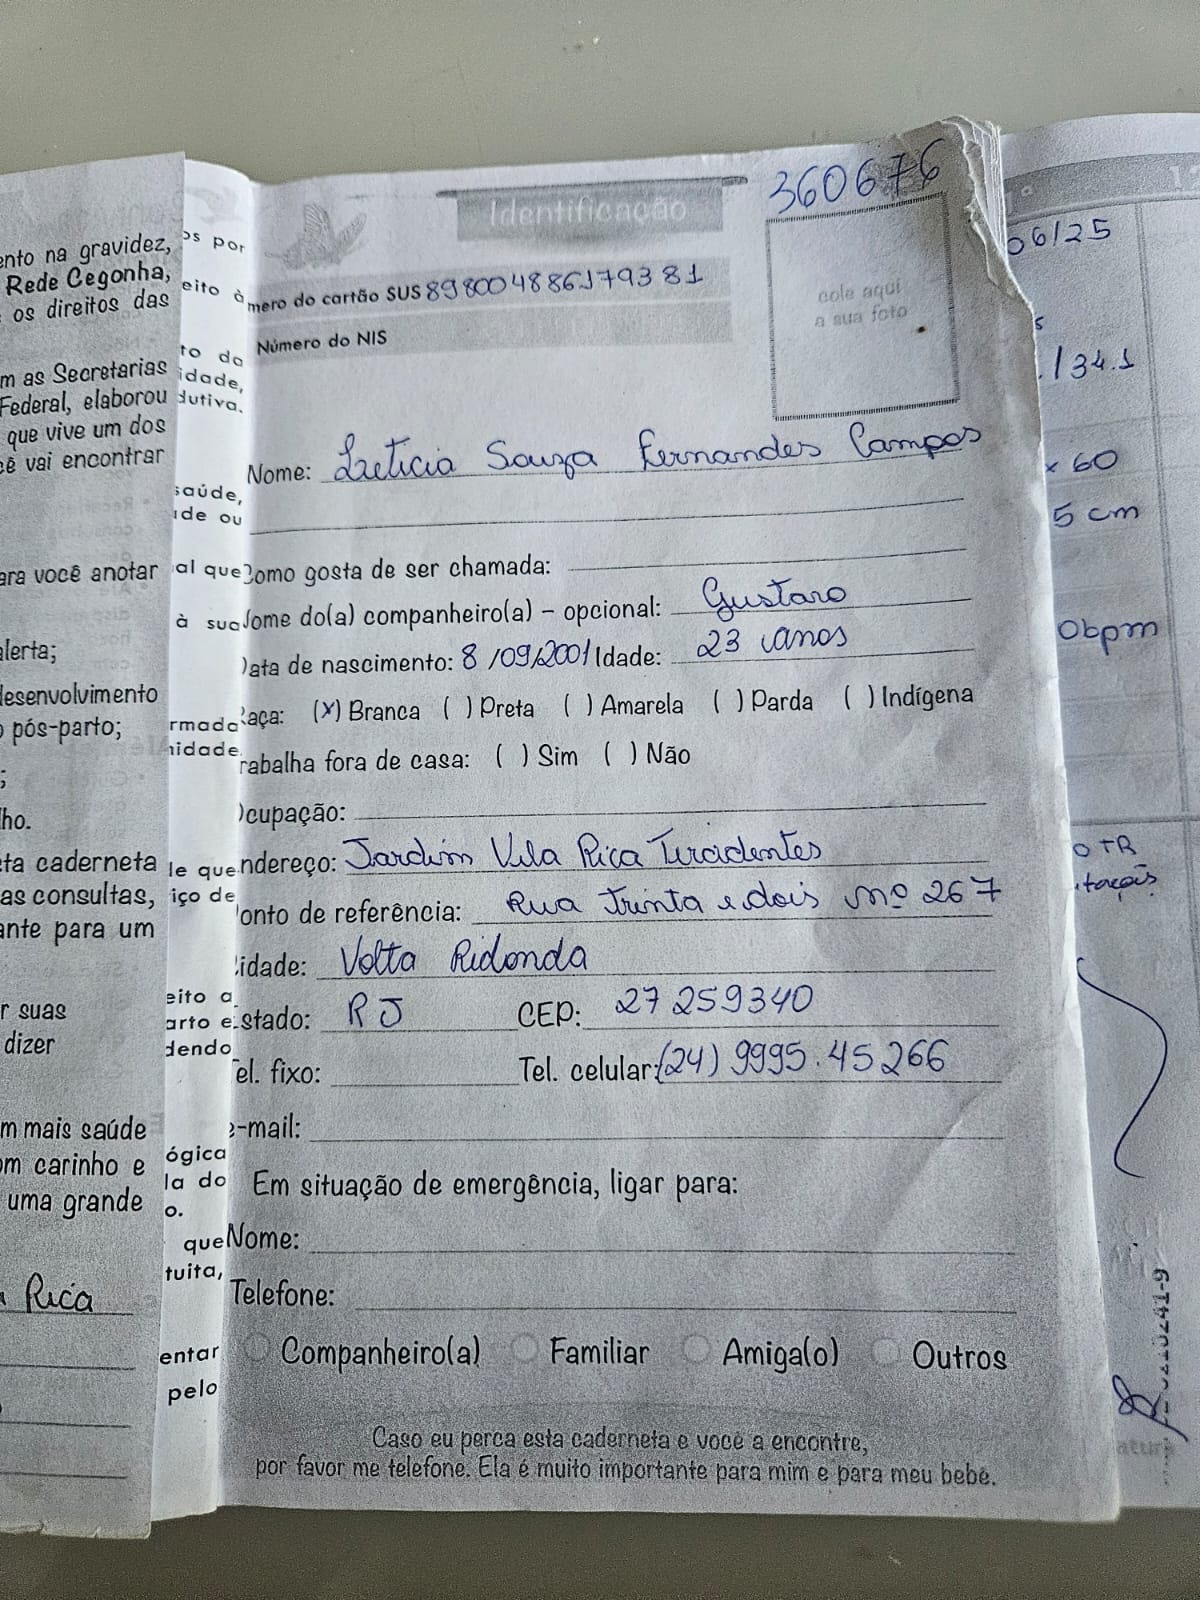 ento na gravidez,
Rede Cegonha,
os direitos das
m as Secretarias
Federal, elaborou
que vive um dos
cê vai encontrar
ara você anotar
alerta;
desenvolvimento
pós-parto;
;
ho.
ta caderneta
as consultas,
ante para um
r suas
dizer
m mais saúde
om carinho e
uma grande
Rica
os por
eito à
to da
idade,
dutiva.
saúde,
ide ou
al que
à sua
rmada
nidade
le que
iço de
eito a
arto e
dendo
ógica
la do
o.
que
tuita,
entar
pelo
360676
Identificação
mero do cartão SUS 898004886179381
Número do NIS
cole aqui
a sua foto
Nome: Leticia Souza Fernandes Campos
Como gosta de ser chamada:
Nome do(a) companheiro(a) – opcional: Gustavo
Data de nascimento: 8 /09/2001 Idade: 23 anos
Raça: (x) Branca ( ) Preta ( ) Amarela ( ) Parda ( ) Indígena
rabalha fora de casa: ( ) Sim ( ) Não
Ocupação:
ndereço: Jardim Vila Rica Tiradentes
onto de referência: Rua Trinta e dois nº 267
idade: Volta Ridonda
stado: RJ CEP: 27259340
Tel. fixo: Tel. celular: (24) 9995.45266
e-mail:
Em situação de emergência, ligar para:
Nome:
Telefone:
Companheiro(a) Familiar Amiga(o) Outros
Caso eu perca esta caderneta e você a encontre,
por favor me telefone. Ela é muito importante para mim e para meu bebê.
06/25
s
/34.1
x 60
5 cm
0bpm